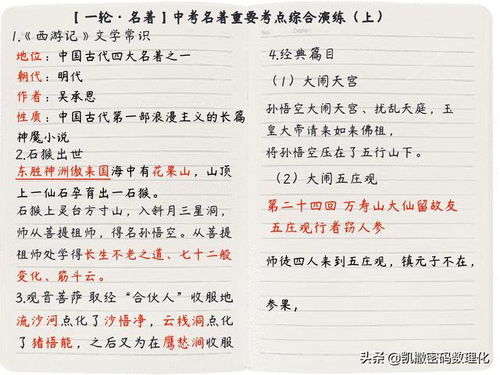 【一轮·名著】中考名著重要考点综合演练（上）
1.《西游记》文学常识
地位：中国古代四大名著之一
朝代：明代
作者：吴承恩
性质：中国古代第一部浪漫主义的长篇
神魔小说
2.石猴出世
东胜神洲傲来国海中有花果山，山顶
上一仙石孕育出一石猴。
石猴上灵台方寸山，入斜月三星洞，
师从菩提祖师，得名孙悟空。从菩提
祖师处学得长生不老之道、七十二般
变化、筋斗云。
3.观音菩萨 取经“合伙人”收服地
流沙河点化了沙悟净，云栈洞点化
了猪悟能，之后又为在鹰愁涧收服
4.经典篇目
（1）大闹天宫
孙悟空大闹天宫、扰乱天庭，玉
皇大帝请来如来佛祖，
将孙悟空压在了五行山下。
（2）大闹五庄观
第二十四回 万寿山大仙留故友
五庄观行者窃人参
师徒四人来到五庄观，镇元子不在，
参果，
头条 @凯撒密码数理化